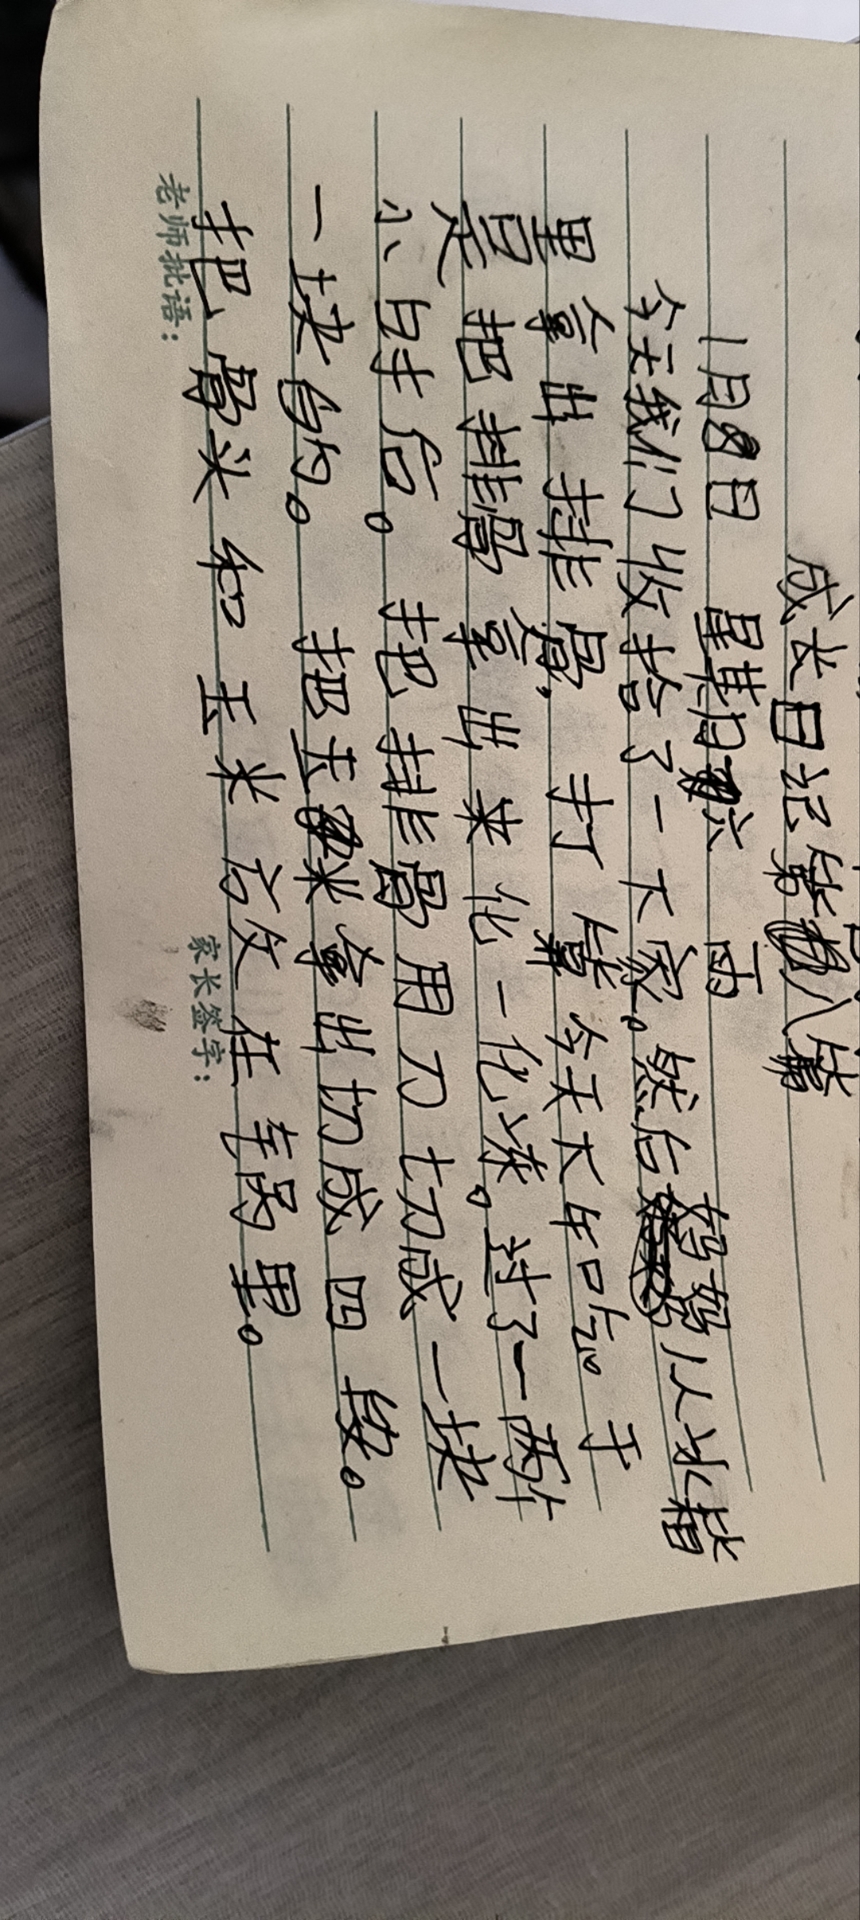 成长日记第八篇
1月8日 星期六 雨
今天我们收拾了一下家。然后妈妈从冰箱
里拿出排骨,打算今天大年吃。于
是把排骨拿出来化一化冻。过了一两个
小时后。把排骨用刀切成一块
一块的。把玉米拿出切成四段。
把骨头和玉米放在锅里。
老师批语:
家长签字: